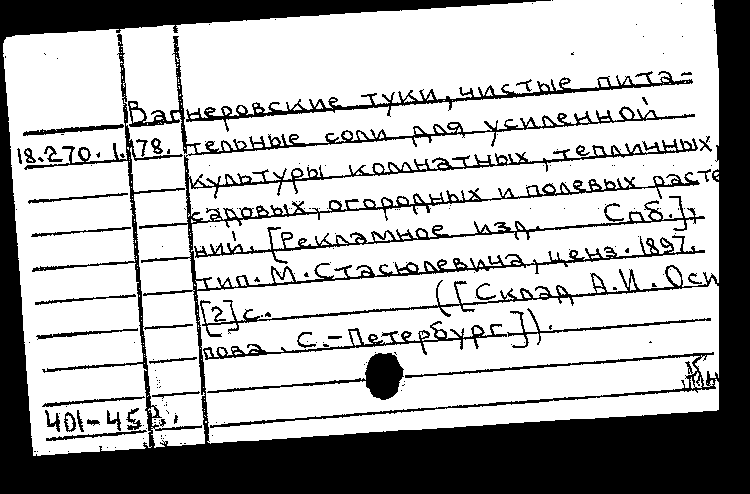 Вагнеровские туки, чистые пита-
18.270.1.178. тельные соли для усиленной
культуры комнатных, тепличных,
садовых, огородных и полевых расте
ний. [Рекламное изд. Спб.],
тип. М. Стасюлевича, ценз. 1897.
[2] с. ([Склад А.И. Оси
пова. С.-Петербург.]).